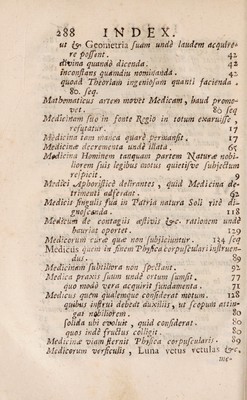 288 INDEX.
ut & Geometria suam undè laudem acquire-
re possent. 42
divina quandò dicenda. 42
inconstans quamdiu nominanda. 42
quoad Theoriam ingeniosum quanti facienda.
80. seq.
Mathematicus artem movet Medicam, haud promo-
vet. 80 seq
Medicinam suo in fonte Regio in totum exaruisse,
refutatur. 17
Medicina tam manca quarè permansit. 17
Medicinæ decrementa undè illata. 65
Medicina Hominem tanquam partem Naturæ nobi-
liorem suis legibus motus quietisve subjectum
respicit. 9
Medici Aphoristicè delirantes, quid Medicina de-
trimenti adferant. 62
Medicis singulis sua in Patria natura Soli ritè di-
gnoscenda. 118
Medicum de contagiis æstivis &c. rationem undè
hauriat oportet. 129
Medicorum curæ quæ non subjiciuntur. 134 seq
Medicus quem in finem Physica corpusculari instruen-
dus. 89
Medicinam subtiliora non spectant. 92
Medica praxis suum undè ortum sumsit. 77
quo modò vera acquirit fundamenta. 71
Medicus quem qualemque considerat motum. 128
quibus instrui debeat auxiliis, ut scopum attin-
gat nobiliorem. 80
solida ubi evoluit, quid considerat. 80
quos indè fructus colligit. 80
Medicinæ viam sternit Physica corpuscularis. 89
Medicorum versiculis, Luna vetus vetulas &c.
me-